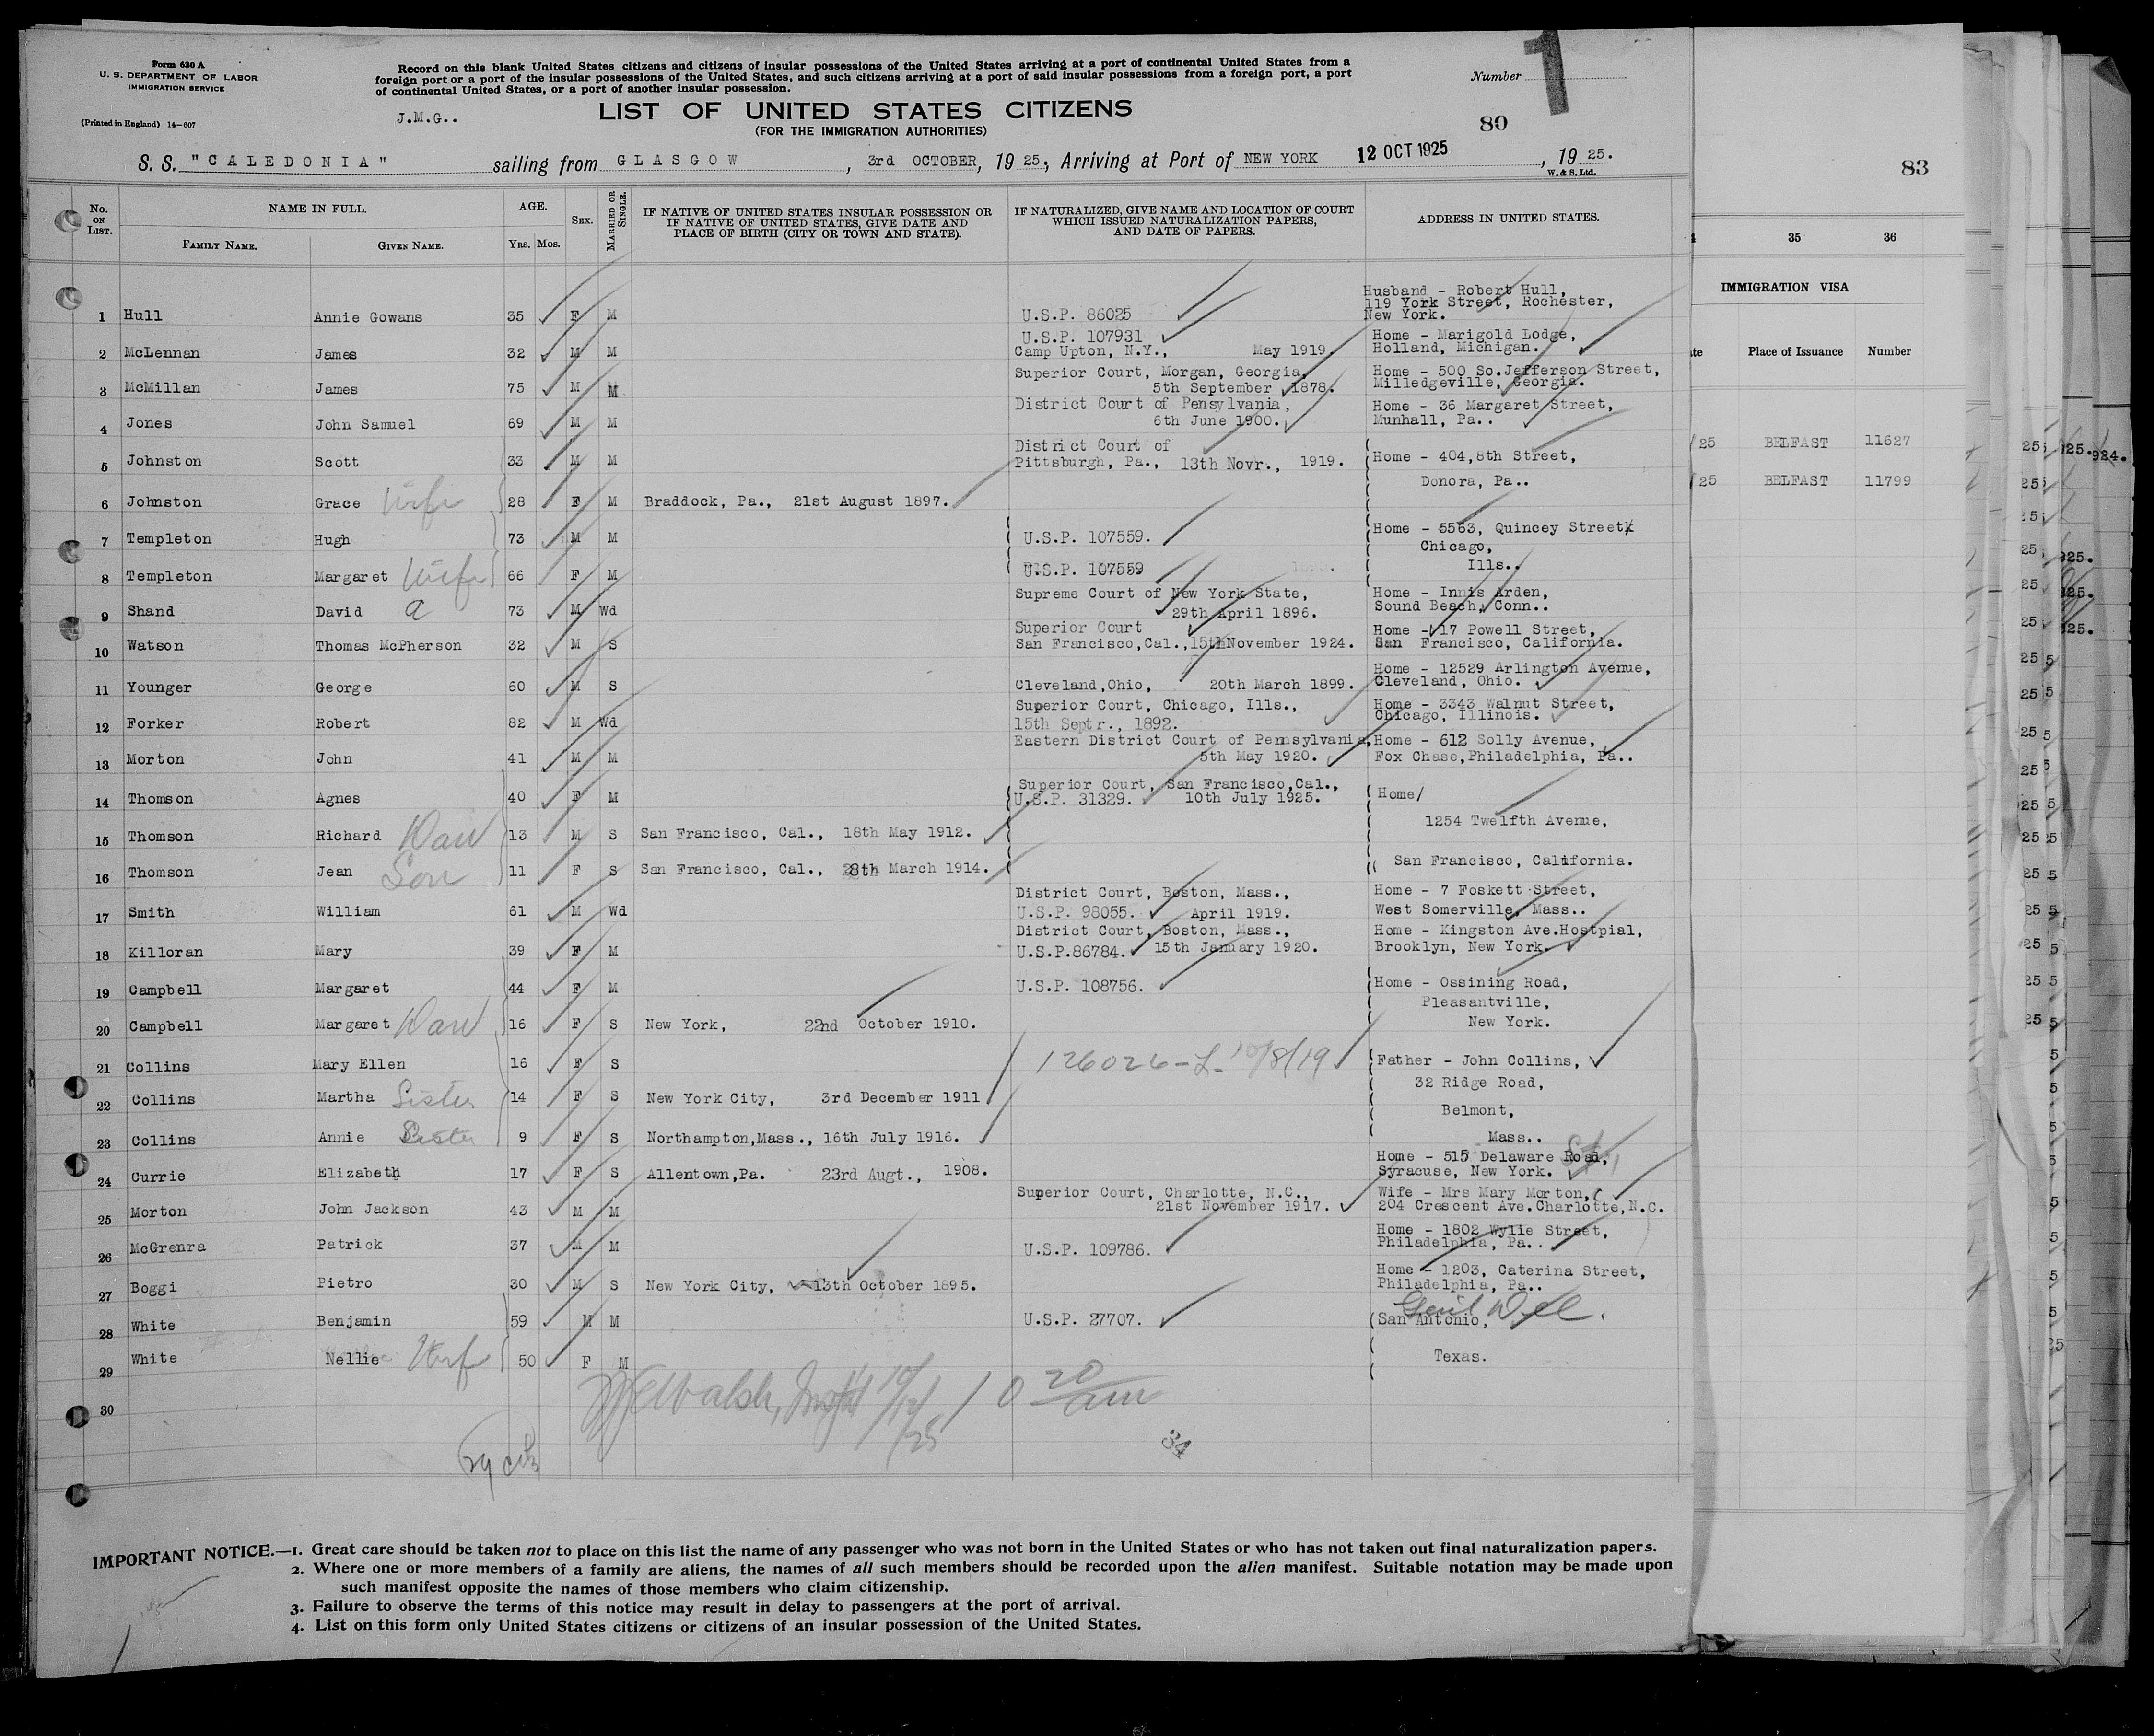 Form 630 A
U. S. DEPARTMENT OF LABOR
IMMIGRATION SERVICE
(Printed in England) 14-607
Record on this blank United States citizens and citizens of insular possessions of the United States arriving at a port of continental United States from a
foreign port or a port of the insular possessions of the United States, and such citizens arriving at a port of said insular possessions from a foreign port, a port
of continental United States, or a port of another insular possession.
Number 1
J.M.G..
LIST OF UNITED STATES CITIZENS
(FOR THE IMMIGRATION AUTHORITIES)
80
S. S. "CALEDONIA" sailing from GLASGOW, 3rd OCTOBER, 1925, Arriving at Port of NEW YORK 12 OCT 1925, 1925.
W. & S. Ltd.
83
No. ON LIST. NAME IN FULL. AGE. SEX. MARRIED OR SINGLE. IF NATIVE OF UNITED STATES INSULAR POSSESSION OR IF NATIVE OF UNITED STATES, GIVE DATE AND PLACE OF BIRTH (CITY OR TOWN AND STATE). IF NATURALIZED, GIVE NAME AND LOCATION OF COURT WHICH ISSUED NATURALIZATION PAPERS, AND DATE OF PAPERS. ADDRESS IN UNITED STATES.
FAMILY NAME. GIVEN NAME. YRS. MOS.
35 36
IMMIGRATION VISA
Place of Issuance Number
Husband - Robert Hull,
119 York Street, Rochester,
1 Hull Annie Gowans 35 F M U.S.P. 86025 New York.
U.S.P. 107931 Home - Marigold Lodge,
2 McLennan James 32 M M Camp Upton, N.Y., May 1919. Holland, Michigan.
Superior Court, Morgan, Georgia, Home - 500 So.Jefferson Street,
3 McMillan James 75 M M 5th September 1878. Milledgeville, Georgia.
District Court of Pensylvania, Home - 36 Margaret Street,
4 Jones John Samuel 69 M M 6th June 1900. Munhall, Pa..
25 BELFAST 11627
District Court of
5 Johnston Scott 33 M M Pittsburgh, Pa., 13th Novr., 1919. Home - 404,8th Street,
Donora, Pa..
25 BELFAST 11799
6 Johnston Grace Wife 28 F M Braddock, Pa., 21st August 1897.
7 Templeton Hugh 73 M M U.S.P. 107559. Home - 5563, Quincey Street
Chicago,
8 Templeton Margaret Wife 66 F M U.S.P. 107559 Ills..
Supreme Court of New York State, Home - Innis Arden,
9 Shand David a 73 M Wd 29th April 1896. Sound Beach, Conn..
Superior Court Home - 17 Powell Street,
10 Watson Thomas McPherson 32 M S San Francisco,Cal.,15th November 1924. San Francisco, California.
Home - 12529 Arlington Avenue,
11 Younger George 60 M S Cleveland,Ohio, 20th March 1899. Cleveland, Ohio.
Superior Court, Chicago, Ills., Home - 3343 Walnut Street,
12 Forker Robert 82 M Wd 15th Septr., 1892. Chicago, Illinois.
Eastern District Court of Pennsylvania, Home - 612 Solly Avenue,
13 Morton John 41 M M 5th May 1920. Fox Chase,Philadelphia, Pa..
Superior Court, San Francisco,Cal.,
14 Thomson Agnes 40 F M U.S.P. 31329. 10th July 1925. Home/
1254 Twelfth Avenue,
15 Thomson Richard Dau 13 M S San Francisco, Cal., 18th May 1912.
16 Thomson Jean Son 11 F S San Francisco, Cal., 28th March 1914. San Francisco, California.
District Court, Boston, Mass., Home - 7 Foskett Street,
17 Smith William 61 M Wd U.S.P. 98055. April 1919. West Somerville, Mass..
District Court, Boston, Mass., Home - Kingston Ave.Hostpial,
18 Killoran Mary 39 F M U.S.P.86784. 15th January 1920. Brooklyn, New York.
19 Campbell Margaret 44 F M U.S.P. 108756. Home - Ossining Road,
Pleasantville,
20 Campbell Margaret Dau 16 F S New York, 22nd October 1910. New York.
21 Collins Mary Ellen 16 F S 126026-L- 10/8/19 Father - John Collins,
32 Ridge Road,
22 Collins Martha Sister 14 F S New York City, 3rd December 1911
Belmont,
23 Collins Annie Sister 9 F S Northampton,Mass., 16th July 1916. Mass..
Home - 515 Delaware Road,
24 Currie Elizabeth 17 F S Allentown,Pa. 23rd Augt., 1908. Syracuse, New York.
Superior Court, Charlotte, N.C., Wife - Mrs Mary Morton,
25 Morton John Jackson 43 M M 21st November 1917. 204 Crescent Ave.Charlotte,N.C.
Home - 1802 Wylie Street,
26 McGrenra Patrick 37 M M U.S.P. 109786. Philadelphia, Pa..
Home - 1203, Caterina Street,
27 Boggi Pietro 30 M S New York City, 13th October 1895. Philadelphia, Pa..
Genl Del.
28 White Benjamin 59 M M U.S.P. 27707. San Antonio,
29 White Nellie Wife 50 F M Texas.
30
Walsh, Insp 10/12/25 10 20 am
34
29 cits
IMPORTANT NOTICE.—1. Great care should be taken not to place on this list the name of any passenger who was not born in the United States or who has not taken out final naturalization papers.
2. Where one or more members of a family are aliens, the names of all such members should be recorded upon the alien manifest. Suitable notation may be made upon
such manifest opposite the names of those members who claim citizenship.
3. Failure to observe the terms of this notice may result in delay to passengers at the port of arrival.
4. List on this form only United States citizens or citizens of an insular possession of the United States.